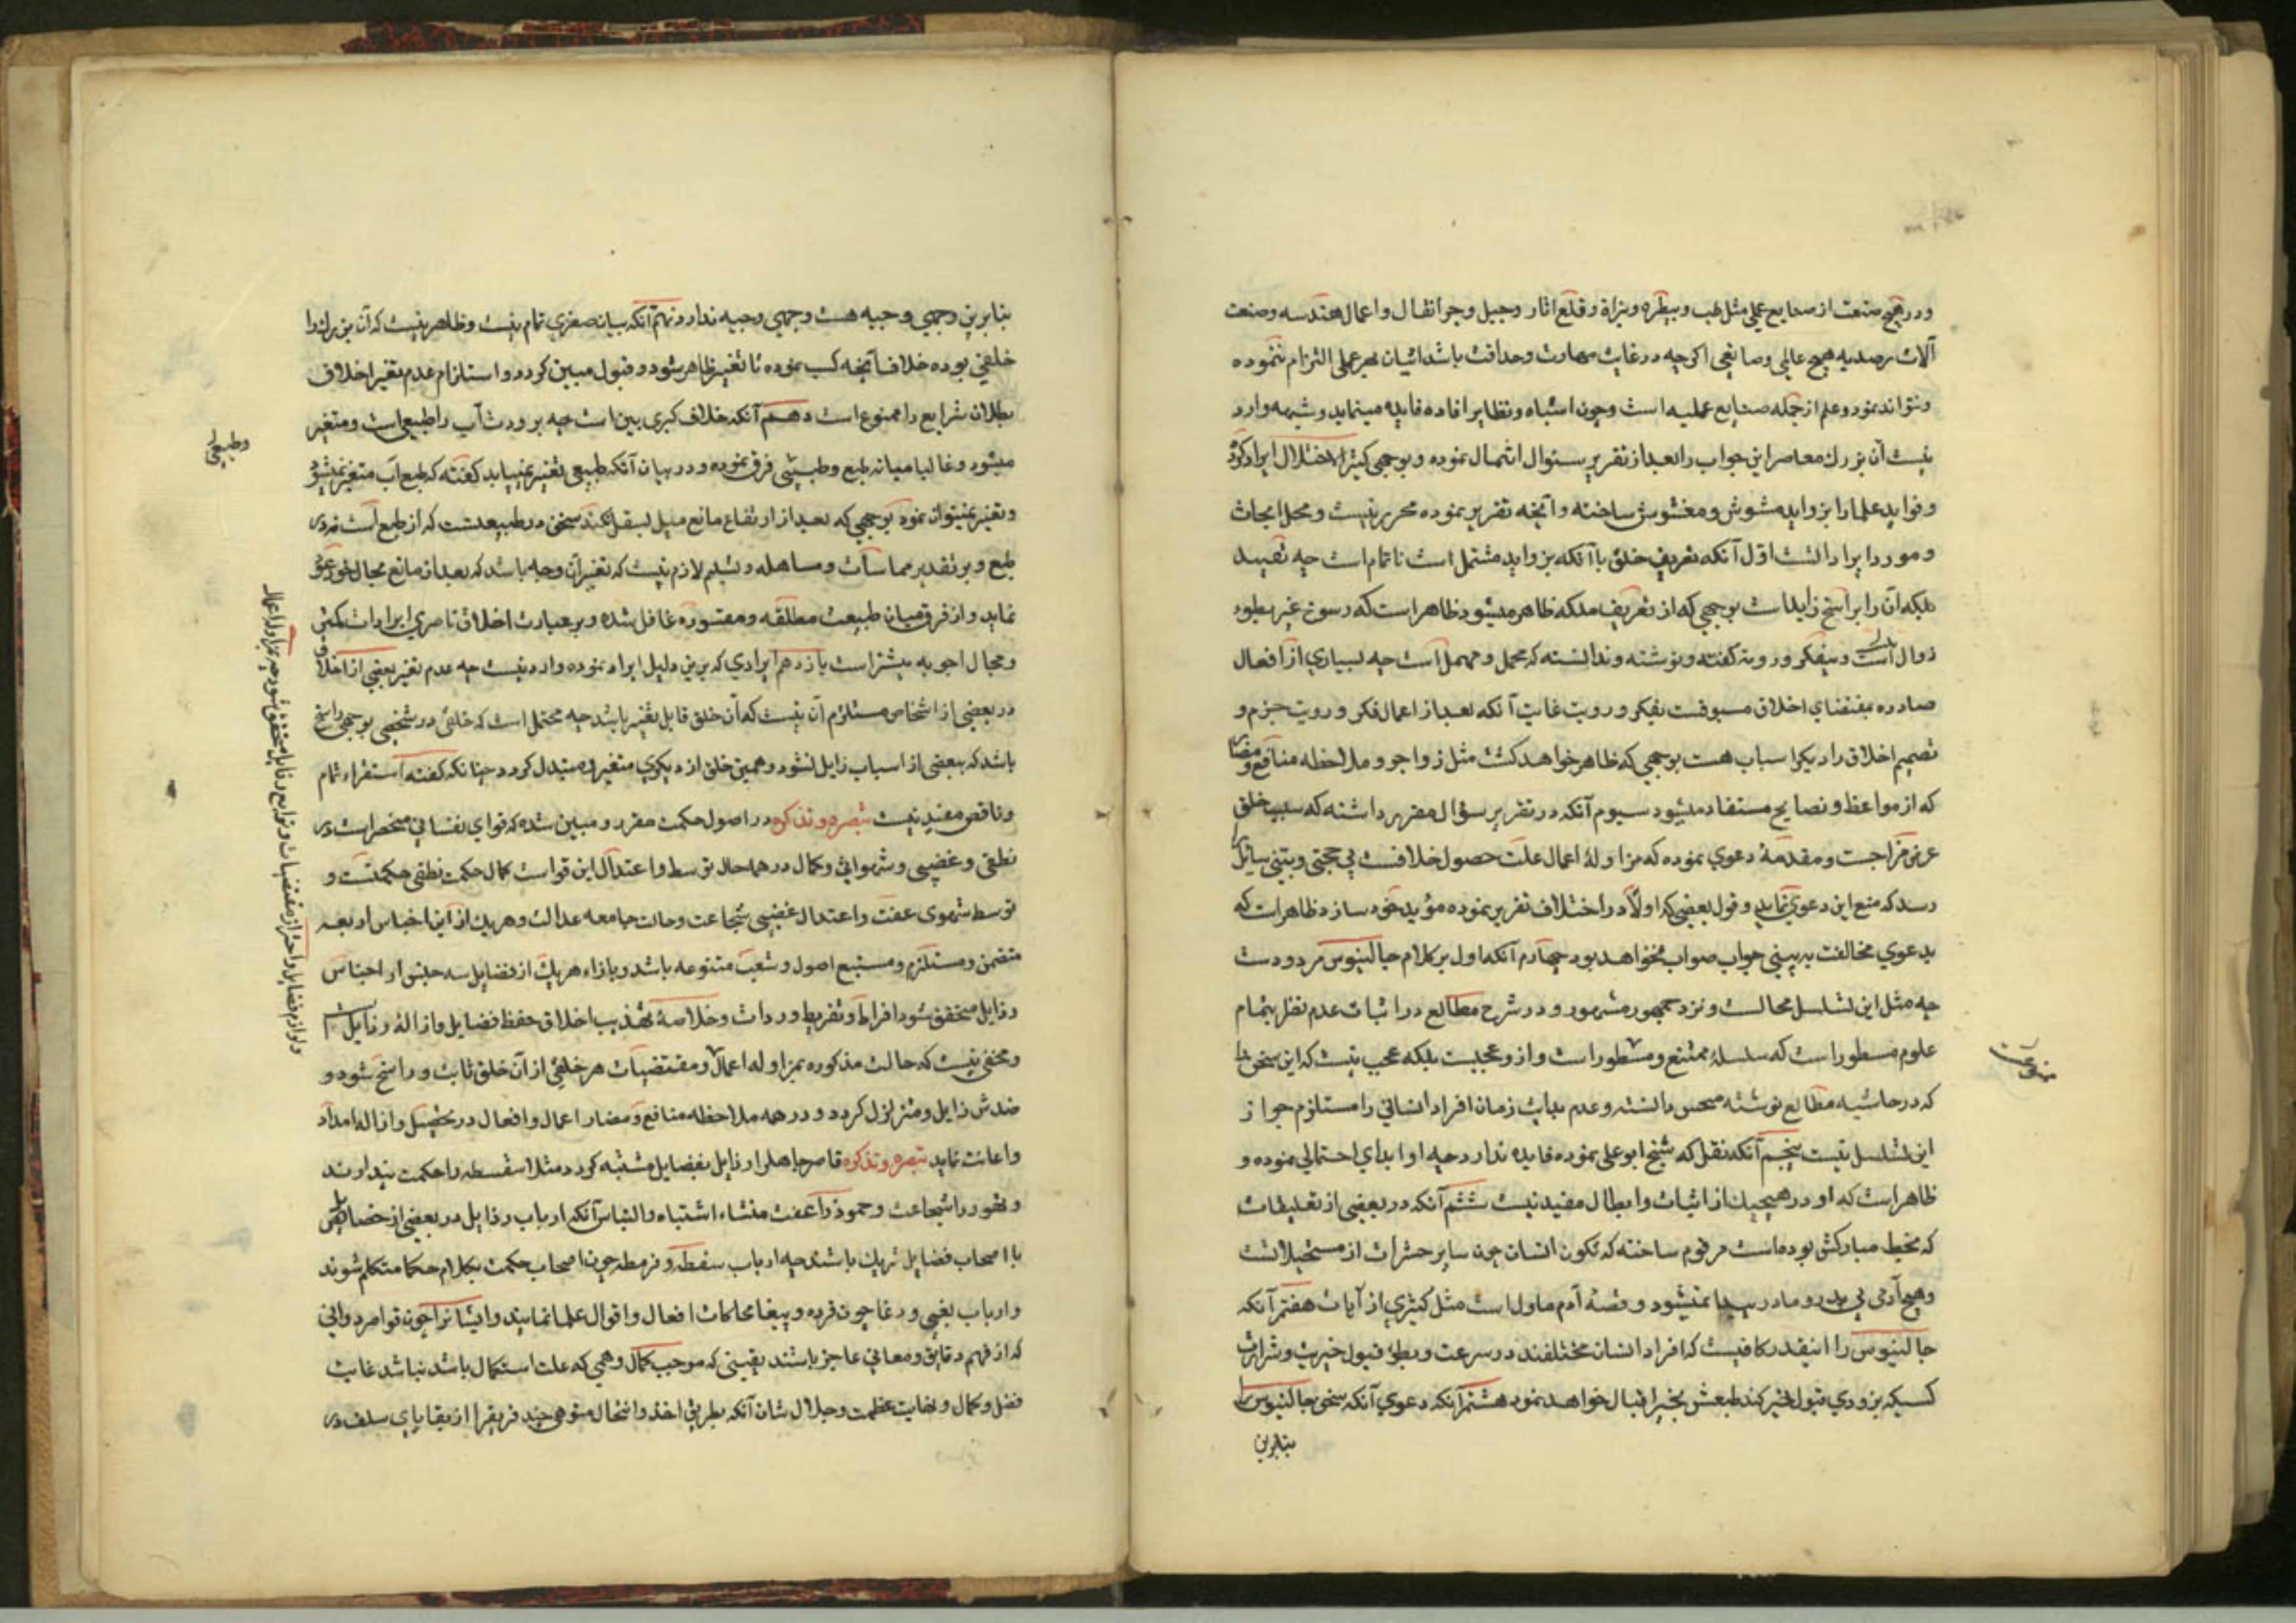 ودر هیچ صنعت از صنایع عملی مثل طب وبیطره وبزاة وقلع اثار وحیل وجر اثقال واعمال هندسه وصنعت
آلات رصدیه هیچ عالمی وصانعی اکرچه در غایت مهارت وحذاقت باشد اتیان بهر عملی التزام ننموده
ونتواند نمود وعلم از جمله صنایع عملیه است وچون اشباه ونظایر افاده فایده مینماید وشبهه وارد
نیست آن بزرك معاصر این جواب را بعد از تقریر سئوال انتحال نموده وبوجهی کثیر الاختلال ایراد کرده
وفواید علما را بزواید مشوش ومغشوش ساخته وآنچه تقریر نموده محرر نیست ومحل ابحاث
ومورد ایرادانست اول آنکه تعریف خلق باآنکه بزواید مشتمل است ناتمام است چه تقیید
ملکه آن را براسخ زایداست بوجهی که از تعریف ملکه ظاهر میشود ظاهر است که رسوخ غیر بطوء
زوال است وبیفکر ورویة کفته ونوشته وندانسته که مجمل ومهمل است چه بسیاری از افعال
صادره بمقتضای اخلاق مسبوقست بفکر ورویت غایت آنکه بعد از اعمال فکر ورویت جزم و
تصمیم اخلاق را دیکر اسباب هست بوجهی که ظاهر خواهد کشت مثل زواجر وملاحظه منافع ومضار
که از مواعظ ونصایح مستفاد میشود سیوم آنکه در تقریر سؤال مقرر داشته که سبب خلق
عرض مزاجست ومقدمهٔ دعوی نموده که مزاولهٔ اعمال علت حصول خلاقست بی حجتی وبتنی سائل را
رسد که منع این دعوی نماید وقول بعضی که اولاً در اختلاف تقریر نموده مؤید خود سازد ظاهر است که
بدعوی مخالفت بدیهی جواب صواب نخواهد بود چهارم آنکه اول بر کلام جالینوس مردودست
چه مثل این تسلسل محالست ونزد جمهور مشهور ودر شرح مطالع در اثبات عدم نظر بتمام
علوم مسطور است که سلسلهٔ ممتنع ومسطور است وازو عجبست بلکه عجب نیست که این سخن را
که در حاشیه مطالع نوشته مستحسن دانسته وعدم بدایت زمان افراد انسانی را مستلزم جواز
این تسلسل نیست پنجم آنکه نقل که شیخ ابو علی نموده فایده ندارد چه او ابدای احتمالی نموده و
ظاهر است که او در هیچیك از اثبات وابطال مفید نیست ششم آنکه در بعضی از تعلیقات
که بخط مبارکش بوده است مرقوم ساخته که تکون انسان چون سایر حشرات از مستحیلاتست
وهیچ آدمی بی پدر ومادر پیدا نمیشود وقصهٔ آدم ماول است مثل کثیری از آیات هفتم آنکه
جالینوس را اینقدر کافیست که افراد انسان مختلفند در سرعت وبطؤ قبول خیریت وشرارت
کسیکه بزودی قبول خیر کند طبعش بخیر اقبال خواهد نمود هشتم آنکه دعوی آنکه سخن جالینوس را
بنابرین
بنابرین وجهی وجیه هست وجهی وجیه ندارد نهم آنکه بیان صغری تمام نیست وظاهر نیست که آن بزرك را
خلقی بوده خلاف آنچه کسب نموده تا تغییر ظاهر شود وقبول مبین کردد واستلزام عدم تغیر اخلاق
بطلان شرایع را ممنوع است دهم آنکه خلاف کبری بین است چه برودت آب را طبیعی است ومتغیر
میشود وغالبا میانه طبع وطبیعی فرق نموده ودر بیان آنکه طبیعی تغییر نمییابد کفته که طبع آب متغیر نمیشود
وطبیعی
وتغییر نمیتوان نمود بوجهی که بعد از ارتفاع مانع میل بسفل نکند سخن در طبیعیست که از طبع است نه در
طبع وبر تقدیر مماسات ومساهله وتسلیم لازم نیست که تغیر آن وجه باشد که بعد از مانع مجال خود عود
نماید واز فرق میان طبیعت مطلقه ومقسوره غافل شده وبر عبارت اخلاق ناصری ایرادات کمتر
ومجال اجوبه بیشتر است یازدهم ایرادی که برین دلیل ایراد نموده وارد نیست چه عدم تغیر بعضی از اخلاق
در بعضی از اشخاص مستلزم آن نیست که آن خلق قابل تغییر باشد چه محتمل است که خلقی در شخصی بوجهی راسخ
باشد که ببعضی از اسباب زایل نشود وهمین خلق از دیکری متغیر ومتبدل کردد چنانکه کفته استقراء تام
وناقص مفید نیست تبصره وتذکره در اصول حکمت مقرر ومبین شده که قوای نفسانی منحصر است در
نطقی وغضبی وشهوانی وکمال در همه حال توسط واعتدال این قواست کمال حکمت نطقی حکمتست و
توسط شهوی عفت واعتدال غضبی شجاعت وحالت جامعه عدالت وهریك از این اجناس اربعه
متضمن ومستلزم ومستتبع اصول وشعب متنوعه باشد وبازاء هریك از فضایل سه جنس از اجناس
رذایل متحقق شود افراط وتفریط وردات وخلاصهٔ تهذیب اخلاق حفظ فضایل وازالهٔ رذایل است
ومخفی نیست که حالت مذکوره بمزاوله اعمال ومقتضیات هر خلقی از آن خلق ثابت وراسخ شود و
ضدش زایل ومتزلزل کردد ودر همه ملاحظه منافع ومضار اعمال وافعال در تحصیل وازاله امداد
واعانت نماید تبصره وتذکره قاصر جاهل را رذایل بفضایل مشتبه کردد مثلا سفسطه را حکمت پندارند
وتهور را شجاعت وخمود را عفت منشاء اشتباه والتباس آنکه ارباب رذایل در بعضی از خصایص
با اصحاب فضایل شریك باشند چه ارباب سفطه وقرمطه چون اصحاب حکمت بکلام حکما متکلم شوند
وارباب بغیی ودغا چون قرده وببغا محاکات افعال واقوال علما نمایند وایشانرا چون قواصر دوانی
که از فهم دقایق ومعانی عاجز باشند یقینی که موجب کمال وهمی که علت استکمال باشد نباشد غایت
فضل وکمال ونهایت عظمت وجلال شان آنکه بطریق اخذ وانتحال متوهمی چند فریقرا از بقایای سلف در